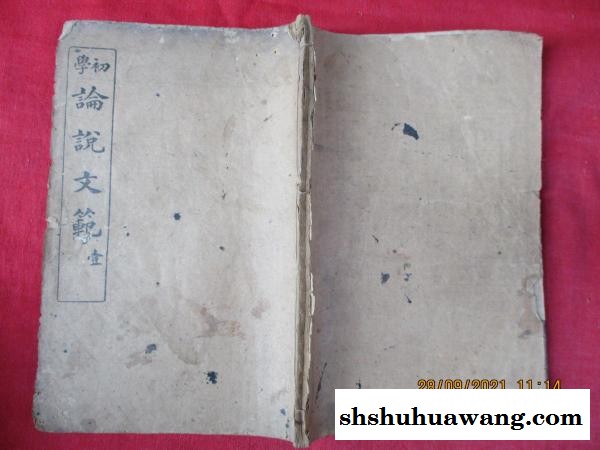 初學
論說文範
壹
28/09/2021 11:14
shshuhuawang.com